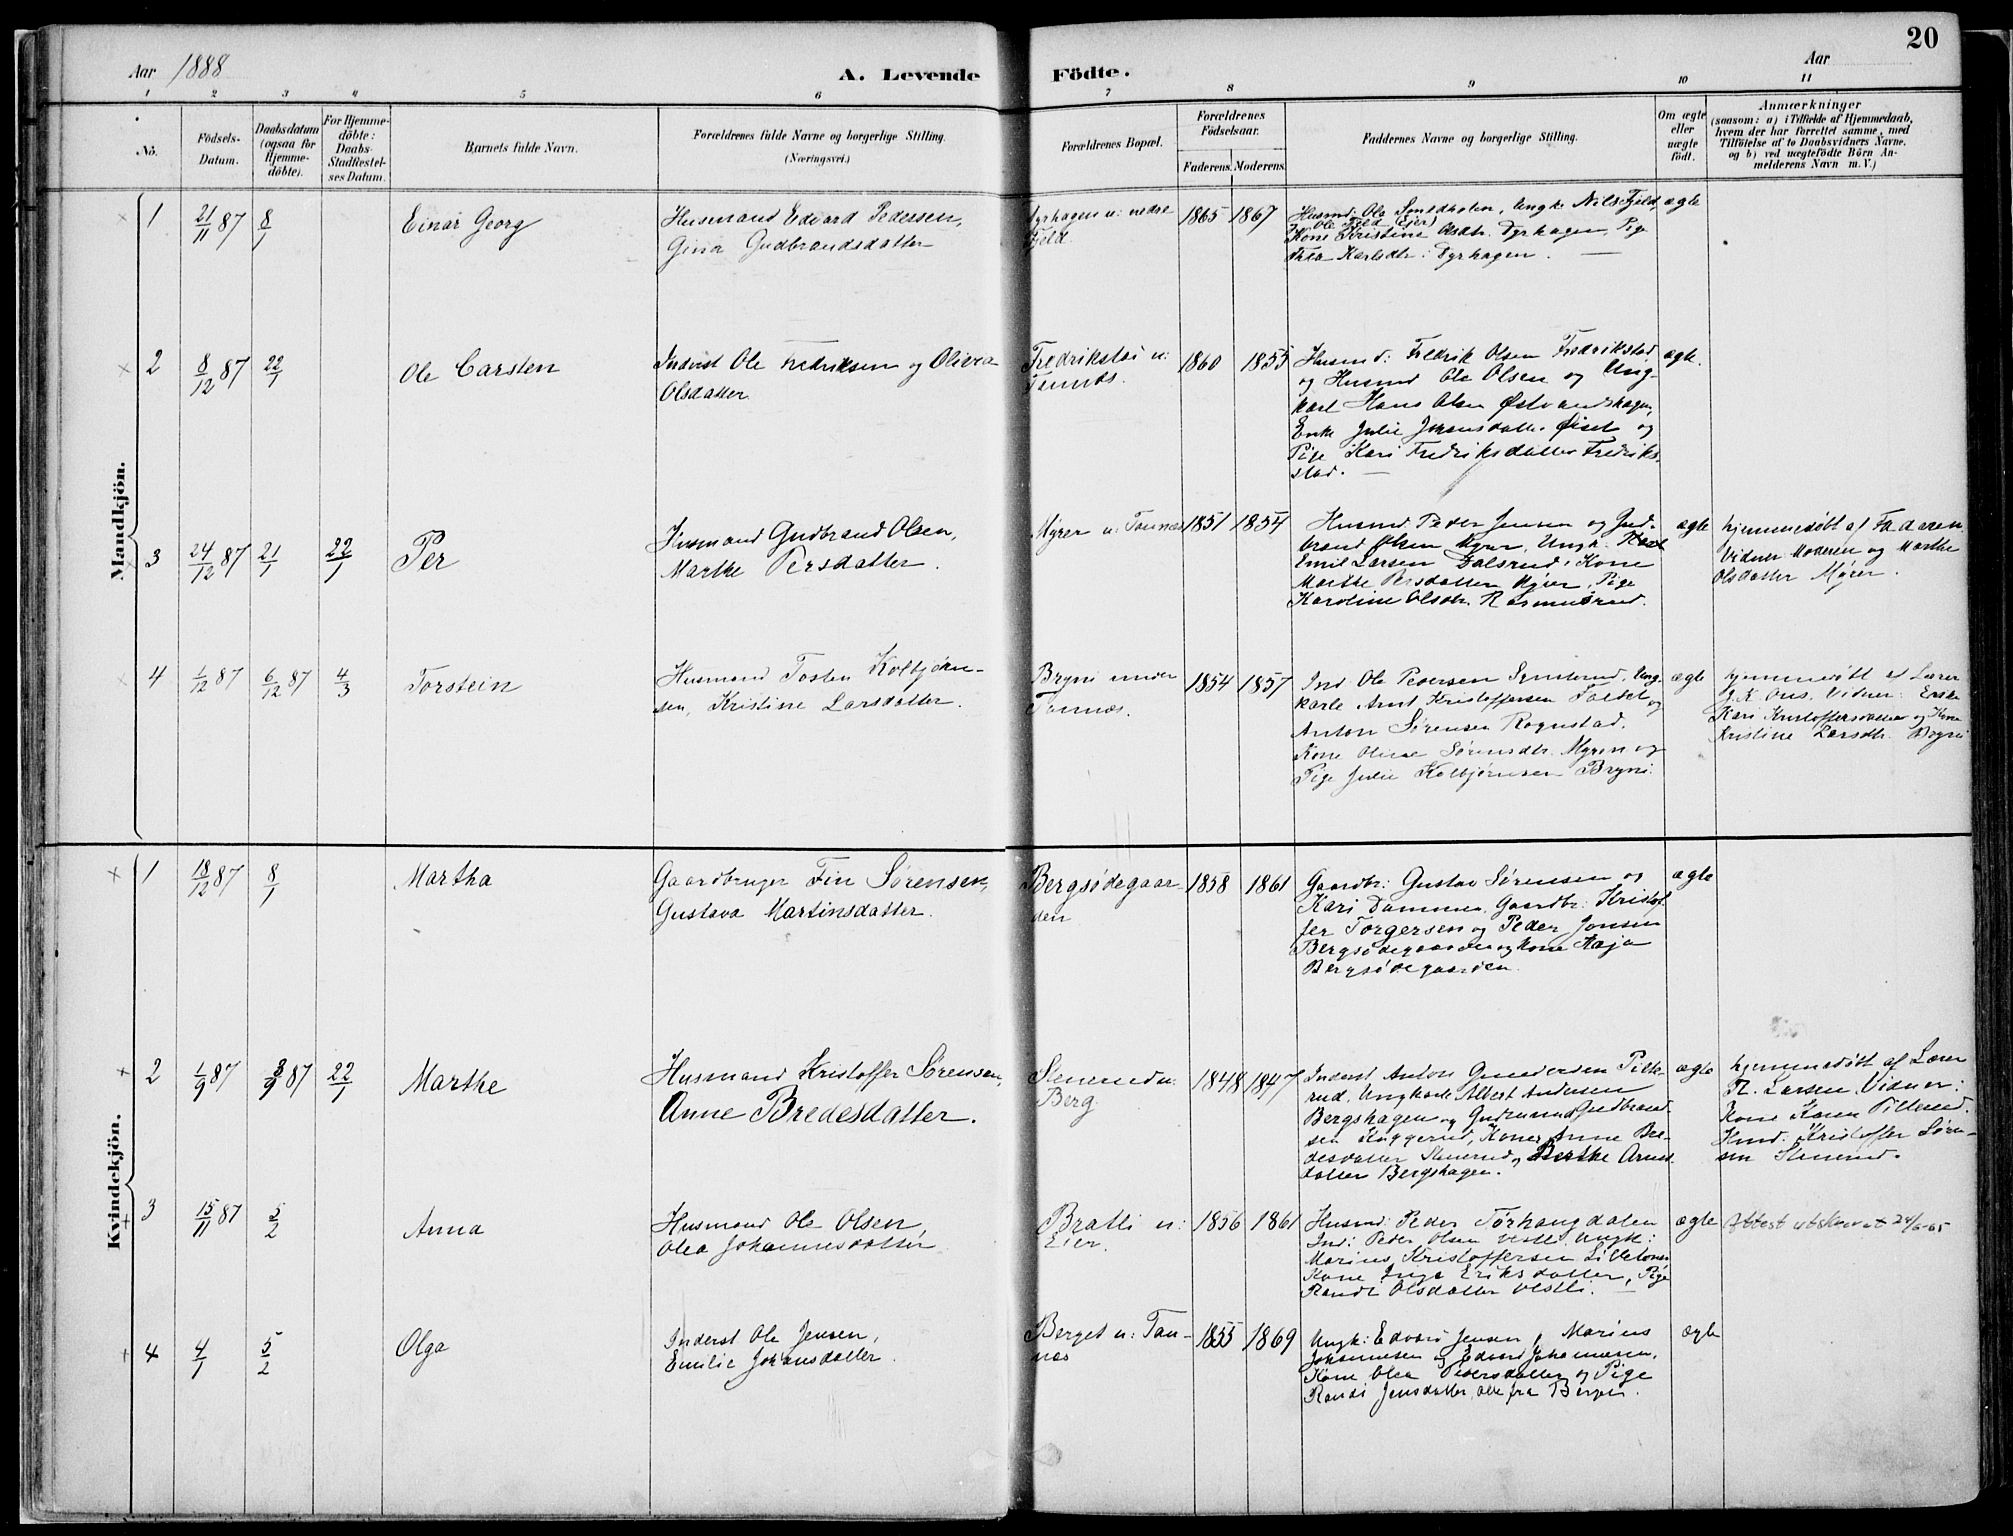 20
Aar 1888
A. Levende Födte.
Aar
1 2 3 4 5 6 7 8 9 10 11
No.
Födsels-Datum.
Daabsdatum (ogsaa for Hjemme-döbte).
For Hjemme-döbte: Daabs-Stadfæstel-ses Datum.
Barnets fulde Navn.
Forældrenes fulde Navne og borgerlige Stilling.
(Næringsvei.)
Forældrenes Bopæl.
Forældrenes Födselsaar.
Faderens. Moderens.
Faddernes Navne og borgerlige Stilling.
Om ægte eller uægte födt.
Anmærkninger
(saasom: a) i Tilfælde af Hjemmedaab, hvem der har forrettet samme, med Tilföielse af to Daabsvidners Navne, og b) ved uægtefödte Börn An-melderens Navn m. V.)
Mandkjön.
1 21/11 87 8/1 Einar Georg
Husmand Edvard Pedersen,
Gina Gudbrandsdatter
Dyrhagen u: nedre
Fjeld
1865 1867
Husmd: Ole Smedholen, Ungk: Nils Fjeld,
Ole Fjeld (Eier)
Kone Kristine Olsdtr. Dyrhagen, Pige
Thea Karlsdtr: Dyrhagen.
ægte
2 8/12 87 22/1 Ole Carsten
Inderst Ole Fredriksen og Olivia
Olsdatter
Fredrikstad u:
Tannæs.
1860 1855
Husmd: Fredrik Olsen Fredrikstad
og Husmd Ole Olsen og Ung-
karl Hans Olsen Østvandshagen,
Enke Julie Johansdatter Øiset og
Pige Kari Fredriksdatter Fredrik-
stad.
ægte.
3 24/12 87 21/1 22/1 Per
Husmand Gudbrand Olsen,
Marthe Persdatter.
Myrer u: Tannæs
1851 1854
Husmd Peder Jensen og Gud-
brand Olsen Myrer, Ungk.
Emil Larsen Dalsrud, Kone
Marthe Persdatter Myrer, Pige
Karoline Olsdtr. Rasmusrud.
ægte
hjemmedøbt af Faderen
Vidner Moderen og Marthe
Olsdatter Myrer.
4 1/12 87 6/12 87 4/3 Torstein
Husmand Tosten Kolbjørn-
sen, Kristine Larsdatter.
Bryni under
Tannæs.
1854 1857
Ind Ole Pedersen, Ung-
karle Arnt Kristoffersen og
Anton Sørensen Rognstad.
Kone Oline Sørensdtr. Myren og
Pige Julie Kolbjørnsen Bryni.
ægte
hjemmedøbt af Lærer
Vidner: Enke
Kari Kristoffersdatter og Kone
Kristine Larsdtr. Bryni
Kvindekjön.
1 18/12 87 8/1 Martha
Gaardbruger Fin Sørensen,
Gustava Martinsdatter.
Bergsødegaar-
den
1858 1861
Gaardbr: Gustav Sørensen og
Kari Dammen, Gaardbr: Kristof-
fer Torgersen og Peder Jonsen
Bergsødegaarden og Kone Kaja
Bergsødegaarden.
ægte
2 1/9 87 3/9 87 22/1 Marthe
Husmand Kristoffer Sørensen,
Anne Bredesdatter.
Stenerud u:
Berg.
1848 1847
Inderst Anton Gundersen Pille-
rud, Ungkarle Albert Andersen
Bergshagen og Gudmund Gudbrand-
sen Kuggerud, Koner Anne Bre-
desdatter Stenerud, Berthe Arnes-
datter Bergshagen.
ægte
hjemmedøbt af Lærer
Fr. Larsen. Vidner:
Kone Karen Pillerud.
Hmd: Kristoffer Søren-
sen Stenerud.
3 15/11 87 5/2 Anna
Husmand Ole Olsen,
Olea Johannesdatter
Bratli u:
Eier.
1856 1861
Husmd: Peder Tørhaugdalen
Ind: Peder Olsen Vestli, Ungk:
Marius Kristoffersen
Kone Inga Eriksdatter, Pige
Randi Olsdatter Vestli.
ægte
Attest utskrevet 24/6-65
4 4/1 5/2 Olga
Inderst Ole Jensen,
Emilie Johansdatter.
Berget u: Tan-
næs
1855 1869
Ungk: Edvard Jensen, Marius
Johannesen og Edvard Johannesen,
Kone Olea Pedersdatter og Pige
Randi Jensdatter, alle fra Berget.
ægte